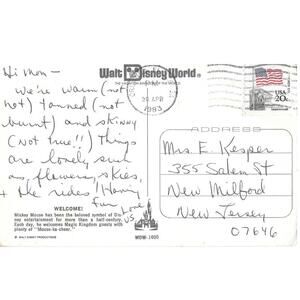 Hi Mom –
We're warm (not
hot) tanned (not
burnt) and skinny
(Not true!!) Things
are lovely such
as, flowers, skies,
+ the rides! Having
fun
Love
US
Walt Disney World®
THE VACATION KINGDOM OF THE WORLD
29 APR
1983
USA
20c
ADDRESS
Mrs E. Kesper
355 Salem St
New Milford
New Jersey
07646
WELCOME!
Mickey Mouse has been the beloved symbol of Dis-
ney entertainment for more than a half-century.
Each day, he welcomes Magic Kingdom guests with
plenty of "Mouse-ka-cheer."
© WALT DISNEY PRODUCTIONS
WDW-1400